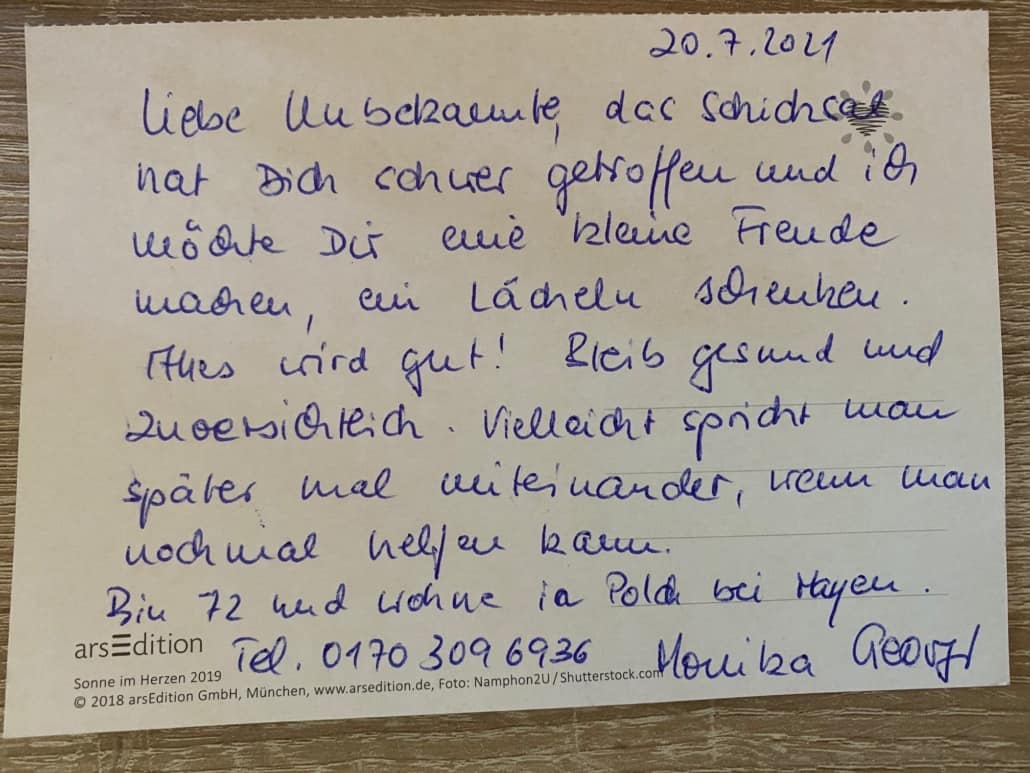 20.7.2021
Liebe Unbekannte, das Schicksal
hat Dich schwer getroffen und ich
möchte Dir eine kleine Freude
machen, ein Lächeln schenken.
Alles wird gut! Bleib gesund und
zuversichtlich. Vielleicht spricht man
später mal miteinander, wenn man
nochmal helfen kann.
Bin 72 und wohne in Polch bei Mayen.
Tel. 0170 309 6936 Monika Georgi
arsEdition
Sonne im Herzen 2019
© 2018 arsEdition GmbH, München, www.arsedition.de, Foto: Namphon2U / Shutterstock.com